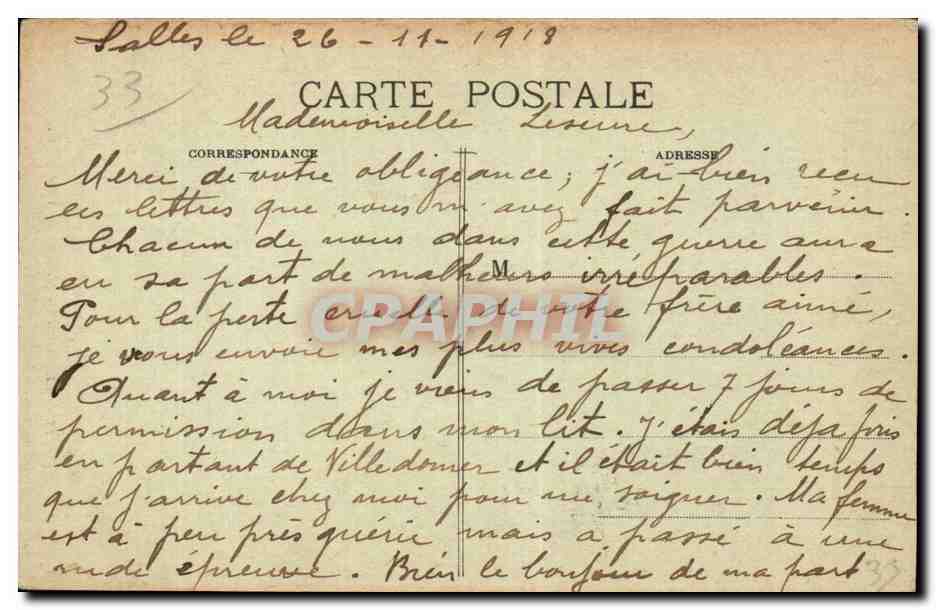 Salles le 26 - 11 - 1918
33
CARTE POSTALE
Mademoiselle Leseure,
CORRESPONDANCE ADRESSE
Merci de votre obligeance; j'ai bien recu
les lettres que vous m'avez fait parvenir.
Chacun de nous dans cette guerre aura
eu sa part de malheurs irréparables.
M
Pour la perte cruelle de votre frère aimé,
CPAPHIL
je vous envoie mes plus vives condoléances.
Quant à moi je viens de passer 7 jours de
permission dans mon lit. J'étais déja pris
en partant de Villedomer et il était bien temps
que j'arrive chez moi pour me soigner. Ma femme
est à peu près guérie mais a passé à une
rude épreuve. Bien le bonjour de ma part
33